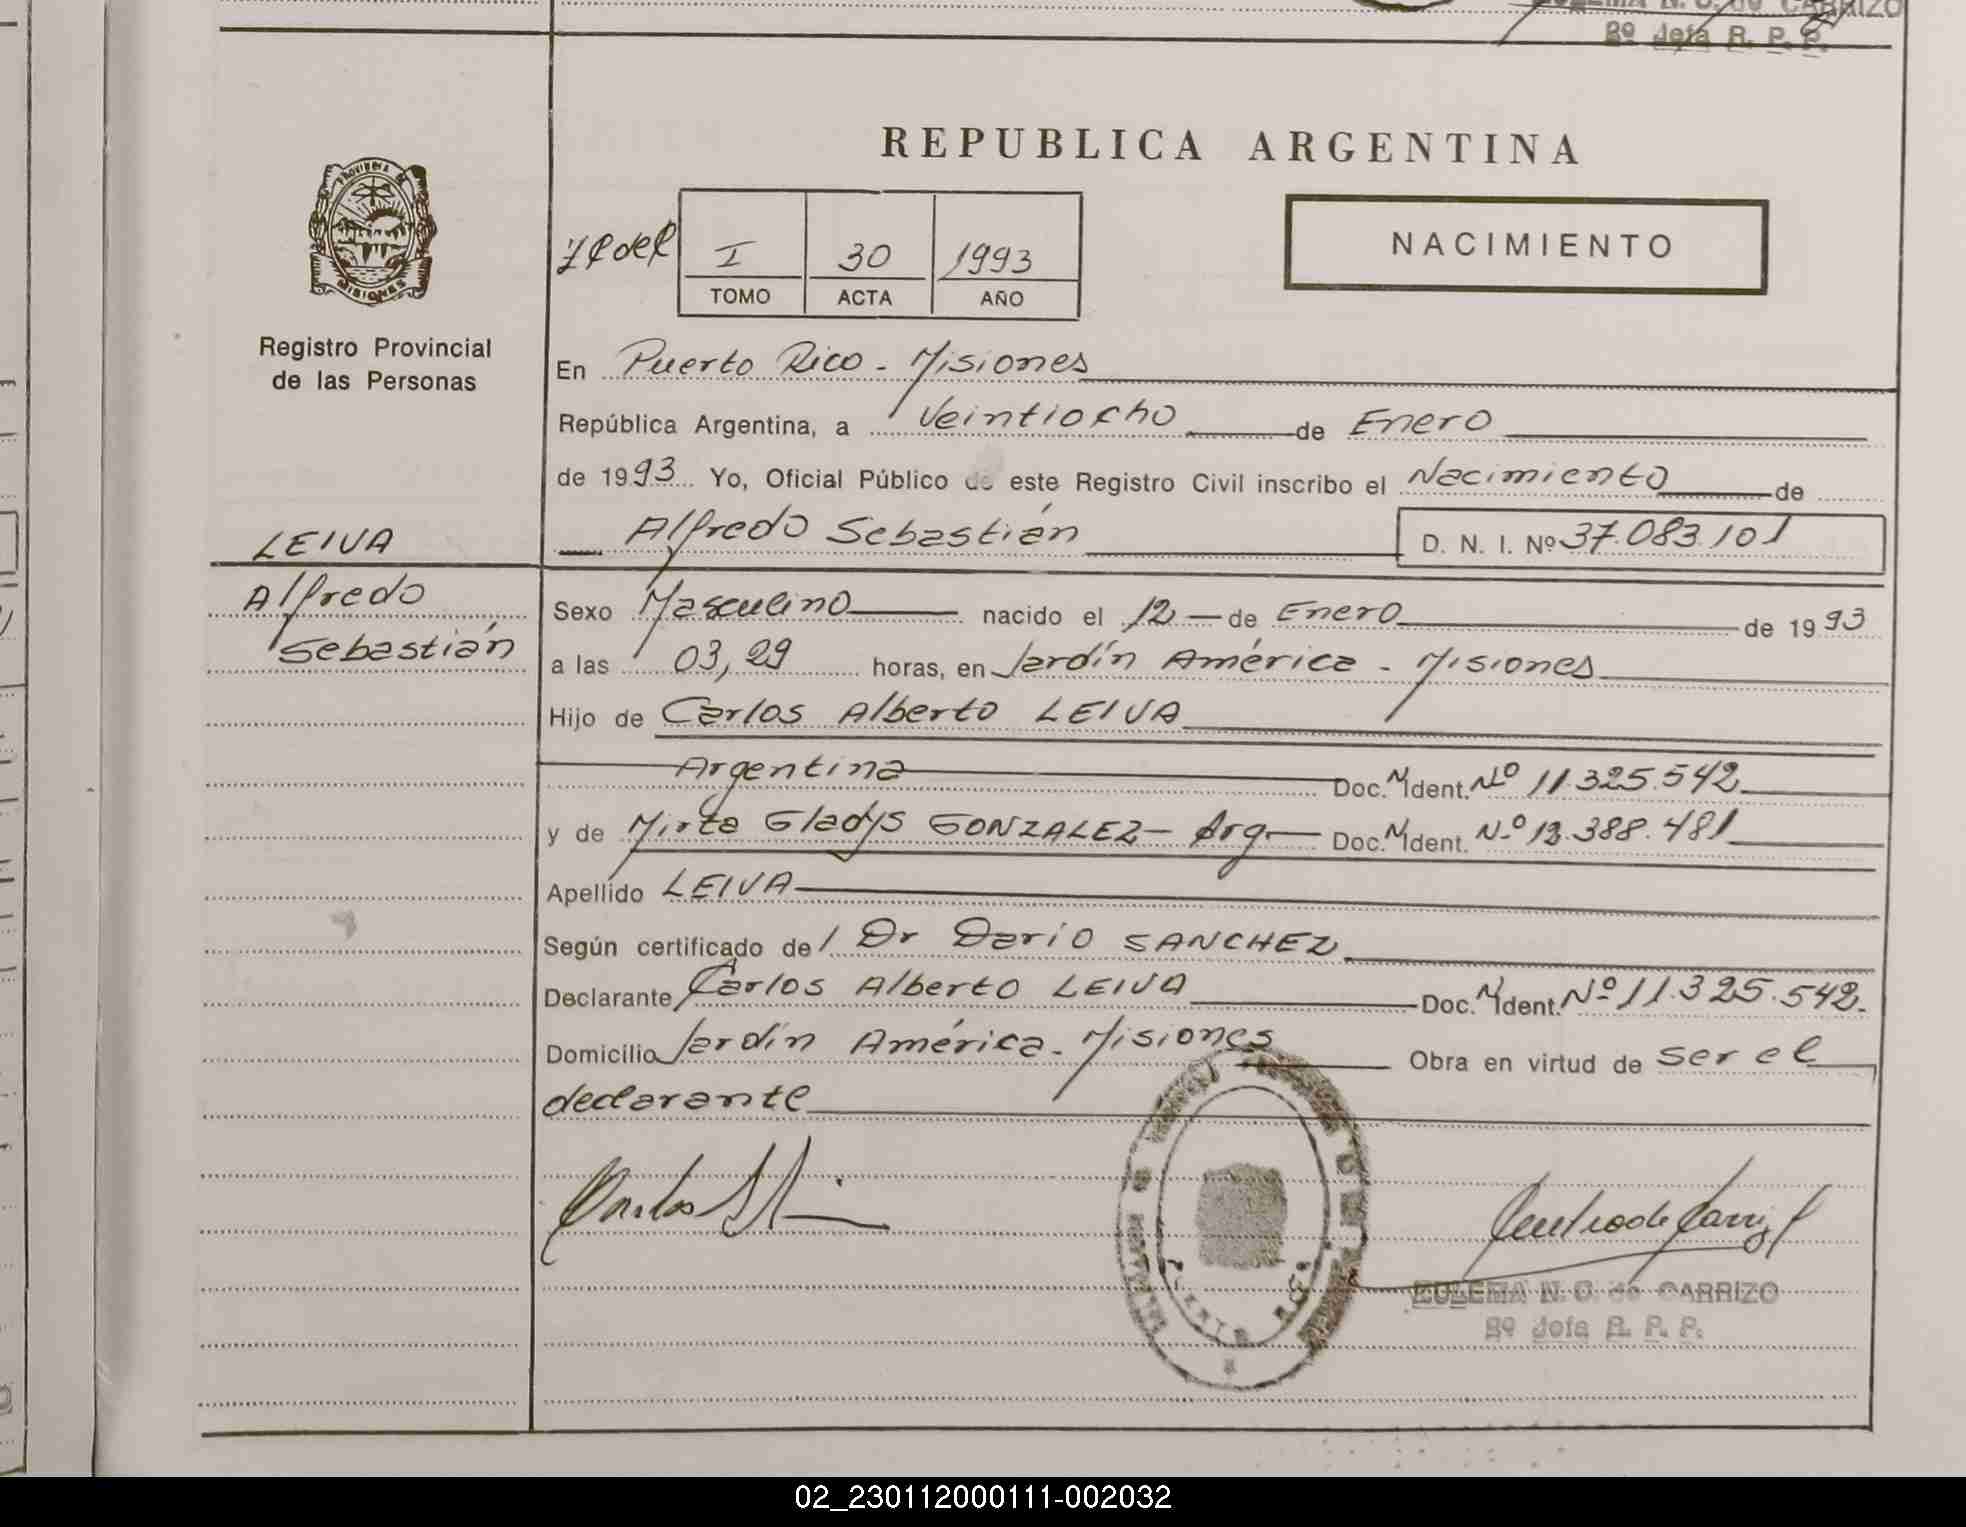 ZULEMA N. C. de CARRIZO
2º Jefa R. P. P.
REPUBLICA ARGENTINA
Provincia de
MISIONES
I 30 1993
TOMO ACTA AÑO
NACIMIENTO
Registro Provincial
de las Personas
En Puerto Rico - Misiones
República Argentina, a Veintiocho de Enero
de 1993 Yo, Oficial Público de este Registro Civil inscribo el Nacimiento de
Alfredo Sebastián D. N. I. Nº 37.083.101
LEIVA
Alfredo
Sebastián
Sexo Masculino nacido el 12 de Enero de 1993
a las 03,29 horas, en Jardín América - Misiones
Hijo de Carlos Alberto LEIVA
Argentina Doc. N Ident. Nº 11.325.542
y de Mirta Gladys GONZALEZ - Arg Doc. N Ident. Nº 12.388.481
Apellido LEIVA
Según certificado de Dr Darío SANCHEZ
Declarante Carlos Alberto LEIVA Doc. N Ident. Nº 11.325.542.
Domicilio Jardín América - Misiones Obra en virtud de ser el
declarante
ZULEMA N. C. de CARRIZO
2º Jefa R. P. P.
02_230112000111-002032